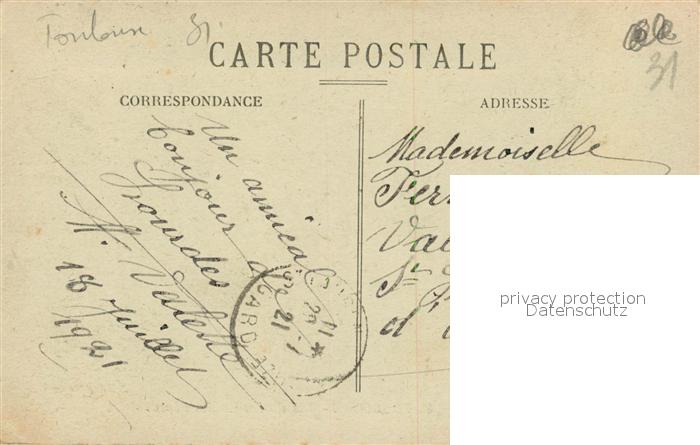 Toulouse 31.
31
CARTE POSTALE
CORRESPONDANCE
ADRESSE
Un amical
bonjour de
Lourdes
Valette
18 Juillet
1921
GARD
21
Mademoiselle
Fer
Val
St
d'
privacy protection
Datenschutz